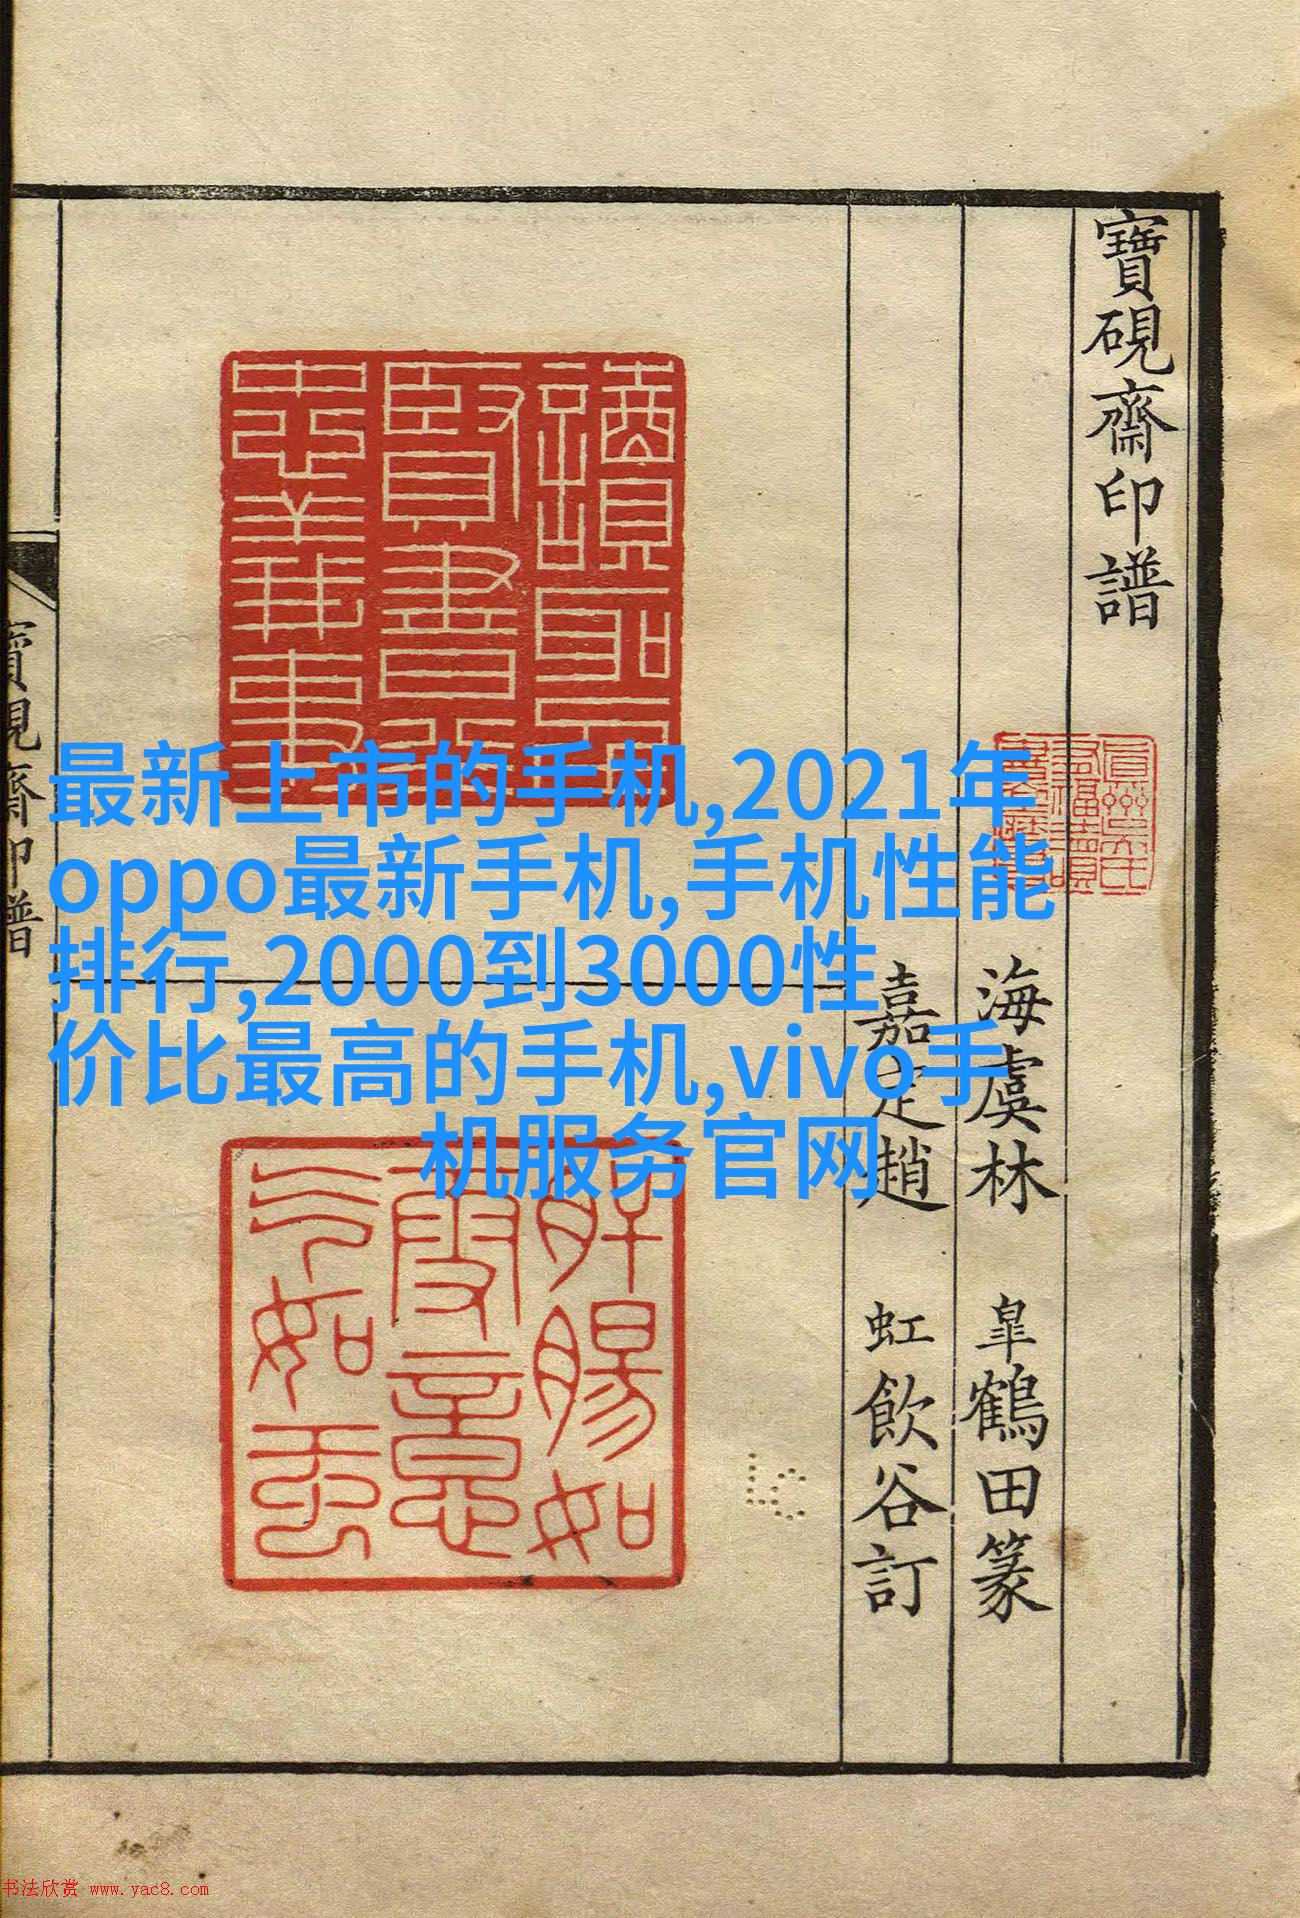 最新上市的手机,2021年
oppo最新手机,手机性能
排行,2000到3000性
价比最高的手机,vivo手
机服务官网
寶硯齋印譜
海虞林 皐鶴田篆
嘉定趙 虹飲谷訂
讀聖
賢書行
忠義事
肝腸如
雪意
气如雲
寶硯齋印譜
书法欣赏 www.yac8.com